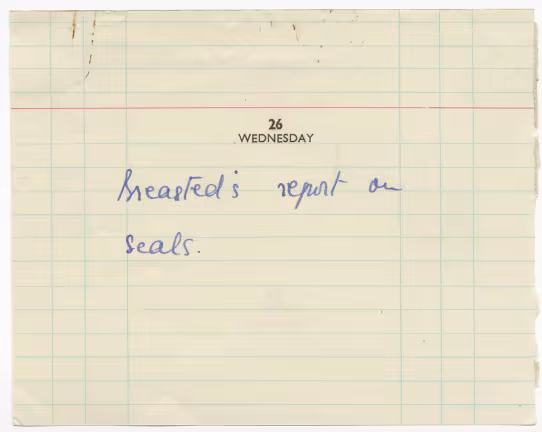 26
WEDNESDAY
Breasted's report on
seals.